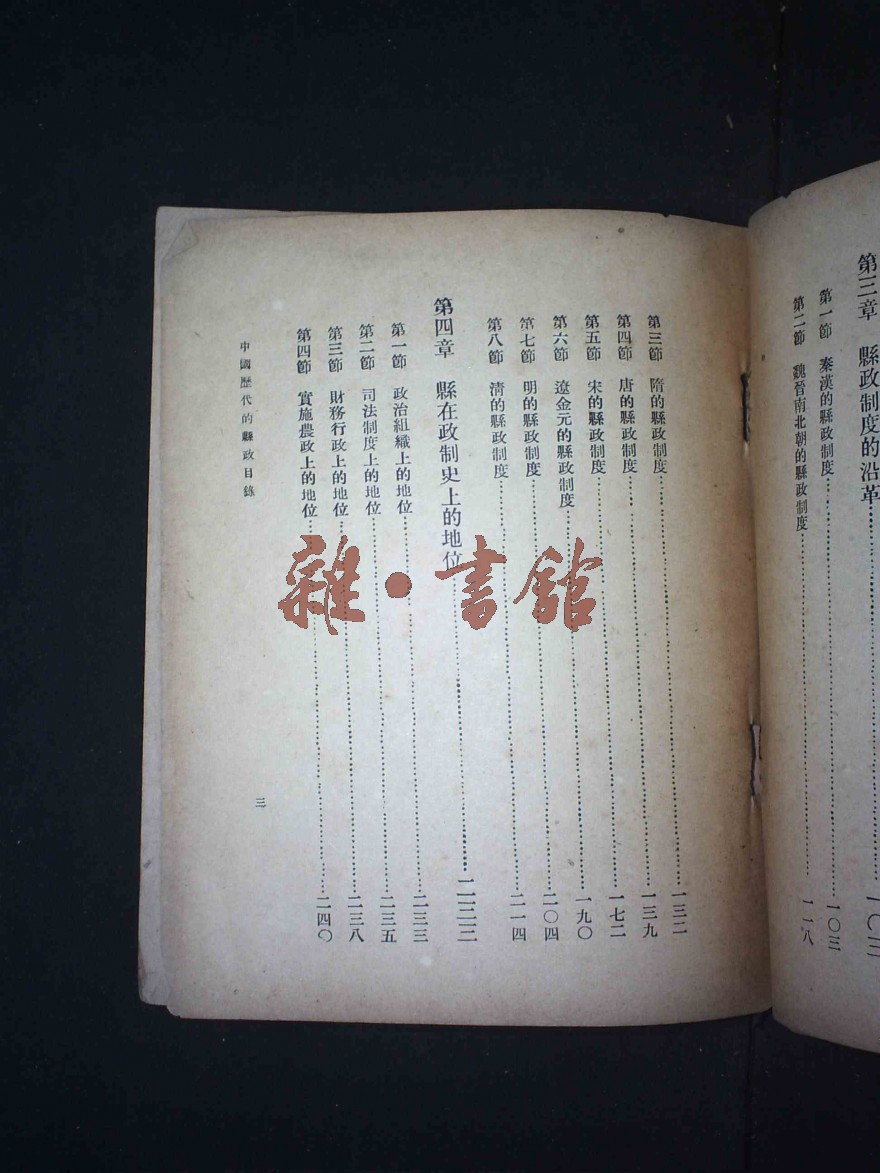 第三章 縣政制度的沿革……一〇三
第一節 秦漢的縣政制度……一〇三
第二節 魏晉南北朝的縣政制度……一一八
第三節 隋的縣政制度……一三二
第四節 唐的縣政制度……一三九
第五節 宋的縣政制度……一七二
第六節 遼金元的縣政制度……一九〇
第七節 明的縣政制度……二〇四
第八節 清的縣政制度……二一四
第四章 縣在政制史上的地位……二三二
第一節 政治組織上的地位……二三三
第二節 司法制度上的地位……二三五
第三節 財務行政上的地位……二三八
第四節 實施農政上的地位……二四〇
中國歷代的縣政目錄
三
雜·書館